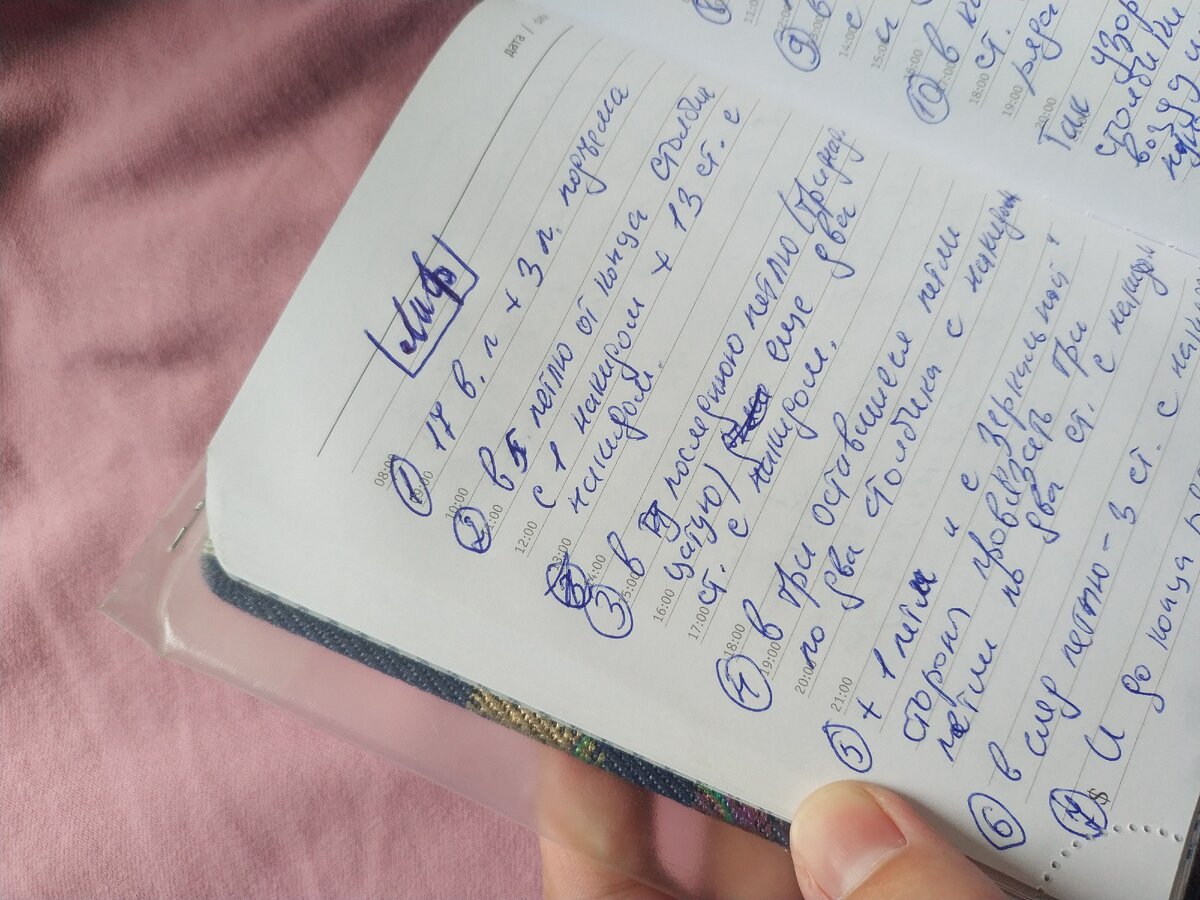 дата /
Лиф
08:00
09:00
① 17 в. л + 3 л. подъема
10:00
11:00
② в 5 петлю от конца столбик
12:00
с 1 накидом + 13 ст. с
13:00
накидом.
14:00
15:00
③ в последнюю петлю (тринад
16:00
цатую) еще два
17:00
ст. с накидом.
18:00
19:00
④ в три оставшиеся петли
20:00
по два столбика с накидом
21:00
⑤ + 1 петля и с зеркальной
стороны провязать три
петли по два ст. с накидом
⑥ в след петлю - 3 ст. с нак
⑦ И до конца
$
11:00
⑨ в
14:00
с
15:00
и
⑩ в к
17:00
18:00
ст.
19:00
ряда
20:00
Так узор
столбики
возду